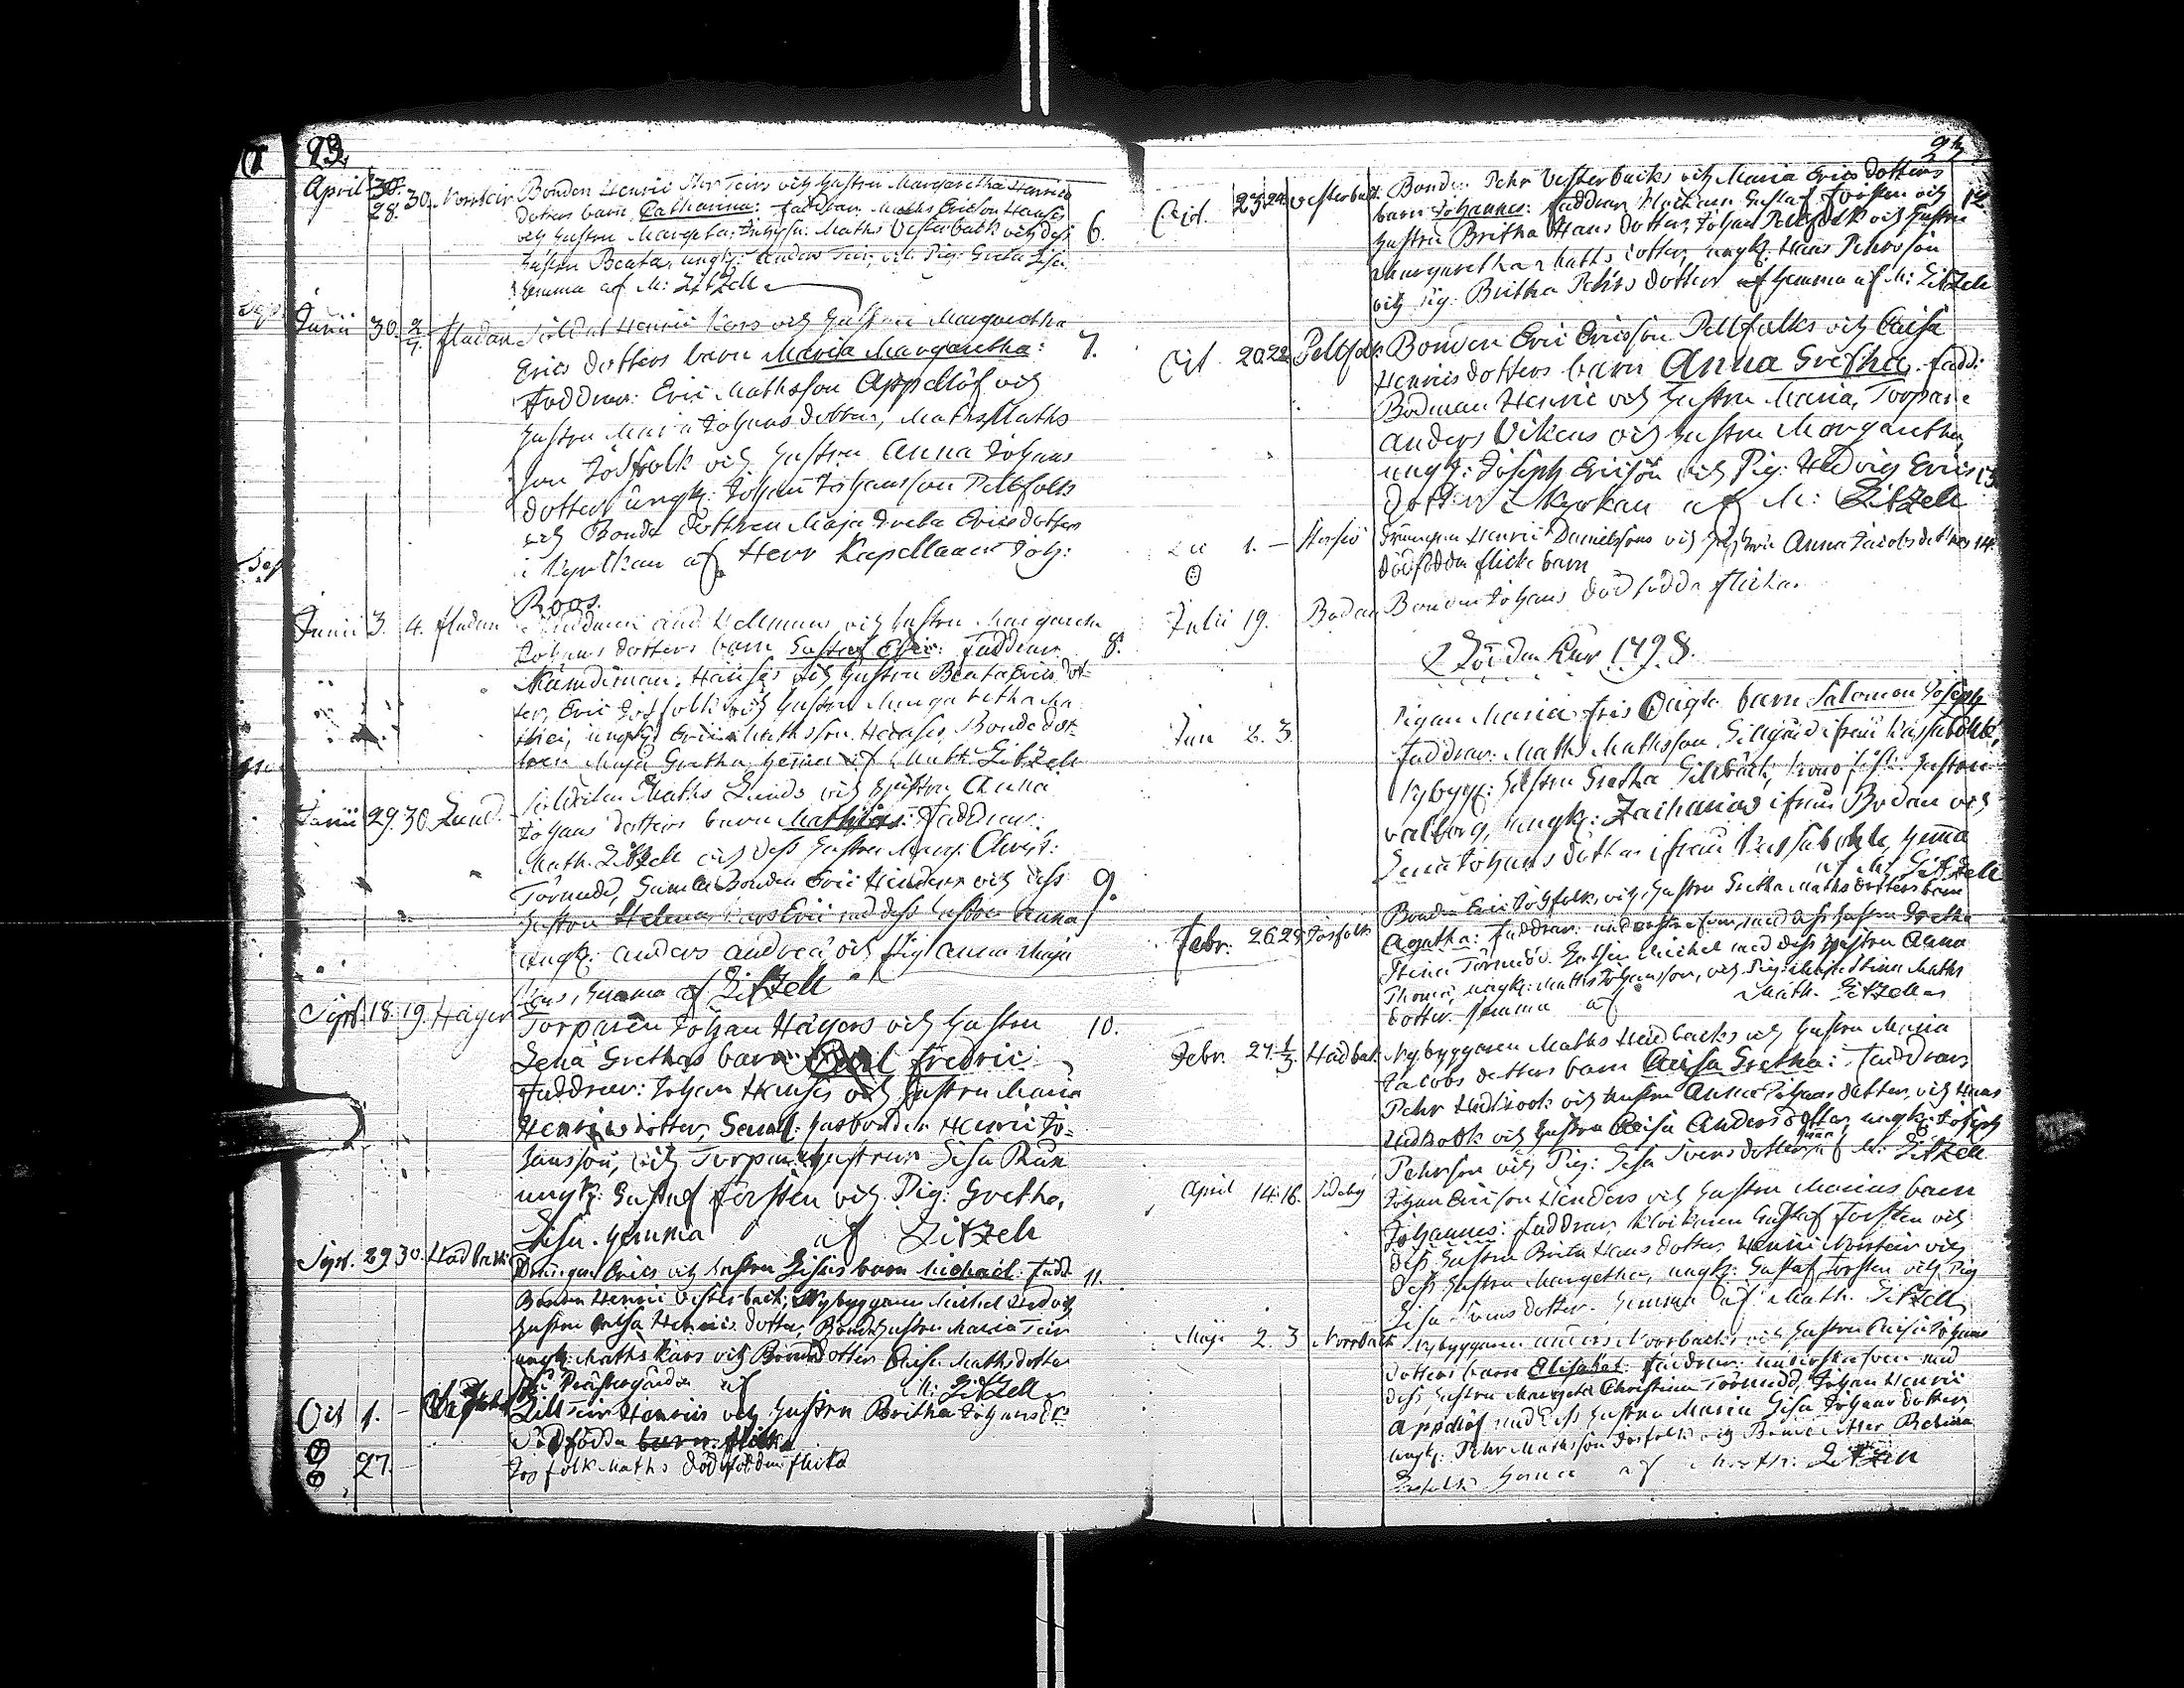 93.
April 30. 28. 30. Norrteir Bonden Henric Norrteirs och hustru Margaretha Henrics
dotters barn Catharina: faddrar Maths Ericson Hanses
och hustru Margeta, Maths Vesterback och dess
hustru Beata, ungk: Anders Teir, och Pig: Greta Lisa
hemma af M: Litzell
6.
Junii 30. 2/7. fladan Soldat Henric Kors och hustru Margaretha
Erics dotters barn Maria Margaretha:
7.
Faddrar: Eric Mathsson Appellöf och
hustru Maria Johans dotter, Maths Maths
son Josfolk och hustru Anna Johans
dotter ungk: Johan Johansson Pellfolk
och Bonde dottren Maja Greta Ericsdotter
i Kyrkan af Herr Kapellanen Joh:
Roos.
Junii 3. 4. fladan och hustru Margareta
Johans dotters barn Gustaf Eric: Faddrar
8.
Nämdeman Hanses och hustru Beata Erics dot-
ter, Eric Josfolk och hustru Margaretha Ma
thei, ungk: Eric Mathsson Hanses, Bonde dot-
tren Maja Gretha hemma af Math: Litzell
Junii 29. 30. Lund Soldaten Maths Lunds och hustru Anna
Johans dotters barn Mathias: Faddrar:
Math. Litzell och dess hustru Marg: Christ:
Törnudd, Gamla Bonden Eric Hinders och dess
9.
hustru Helena, Lars Eric med dess hustru Anna
ungk: Anders Andreæ och Pig Anna Maja
hemma af Litzell
Sept. 18. 19. Häger Torparen Johan Hägers och hustru
10.
Lena Grethas barn Carl Fredric
Faddrar: Johan Hanses och hustru Maria
Henrics dotter, Saml: husbonden Henric Jo-
hansson, och Torpare hustrun Lisa Rusk
ungk: Gustaf Forsten och Pig: Gretha
Lisa. hemma af Litzell
Sept. 29. 30. Hadback Drängen Erics och hustru Lisas barn Michael: Fadd
11.
Bonden Henric Vesterback, Nybyggaren Michel Hed och
hustru Caisa Henrics dotter, Bondehustrun Maria Teir
ungk: Maths Kärs och Bondedotter Caisa Mathsdotter
i Prästegården af M: Litzell
Oct. 1. – Lill Teir Henrics och hustru Britha Johansdr
Dödfödda barn flicka
27. Josfolk Maths dödfödda flicka
93
Oct. 23. 24. Vesterback Bonden Pehr Vesterbacks och Maria Erics dotters
barn Johannes: faddrar Klockaren Gustaf Forsten och
12.
hustru Britha Hans dotter, Johan Pellfolk och hustru
Margaretha Maths dotter, ungk: Hans Pehrsson
och Pig: Britha Pehrs dotter hemma af M: Litzell
Oct 20. 22. Pellfolk Bonden Eric Ericsson Pellfolks och Caisa
Henrics dotters barn Anna Gretha. Fadd:
Bodman Henric och hustru Maria, Torpare
Anders Vikens och hustru Margaretha,
ungk: Joseph Ericson och Pig: Hedvig Erics
13.
dotter i Kyrkan af M: Litzell
1. – Drängen Henric Danielssons och hustru Anna Jacobs dotters
14.
dödfödda flicke barn
Julii 19. Bodan Bonden Johans död födda flicka.
Födde År 1798.
Jan 2. 3. Pigan Maria Fris Oägta barn Salomon Joseph
Faddrar: Maths Mathsson Lillgård ifrån Kassaböhle,
Nybygg: hustru Gretha Lillbäck, hustru
Valborg, ungk: Zacharias ifrån Bodan och
Lena Johans dotter ifrån Kassaböhle, hemma
af M: Litzell
Febr: 26. 27. Josfolk Bonden Eric Josfolk, och hustru Gretha Maths dotters barn
Agatha: Faddrar: med dess hustru Gretha
Stina Törnudd. Michel med dess hustru Anna
Thomæ, ungk: Maths Johansson, och Pig: Maja Stina Maths
dotter. hemma af Math. Litzell
Febr. 27. 1/3. Hadbak Nybyggaren Maths Hadbacks och hustru Maria
Jacobs dotters barn Caisa Gretha: Faddrar
Pehr Hedkrook och hustru Anna Johans dotter, och Hans
Hedkrook och hustru Caisa Anders dotter, ungk: Joseph
Pehrson och Pig: Lisa Svens dotter hema af M: Litzell
April 14. 16. Sideby Johan Ericson Hinders och hustru Marias barn
Johannes: faddrar Klockaren Gustaf Forsten och
dess hustru Brita Hans dotter, Henric Norrteir och
dess hustru Margetha, ungk: Gustaf Forsten och Pig
Lisa Svens dotter. hemma af Math. Litzell
Maji 2. 3 Norrback Nybyggaren Anders Norrbacks och hustru Caisa Johans
dotters barn Elisabet: Faddrar: med
dess hustru Margeta Christina Törnudd, Johan Henric
Appellöf med dess hustru Maria Lisa Johans dotter,
ungk: Pehr Mathsson Josfolk och
hemma af Math: Litzell